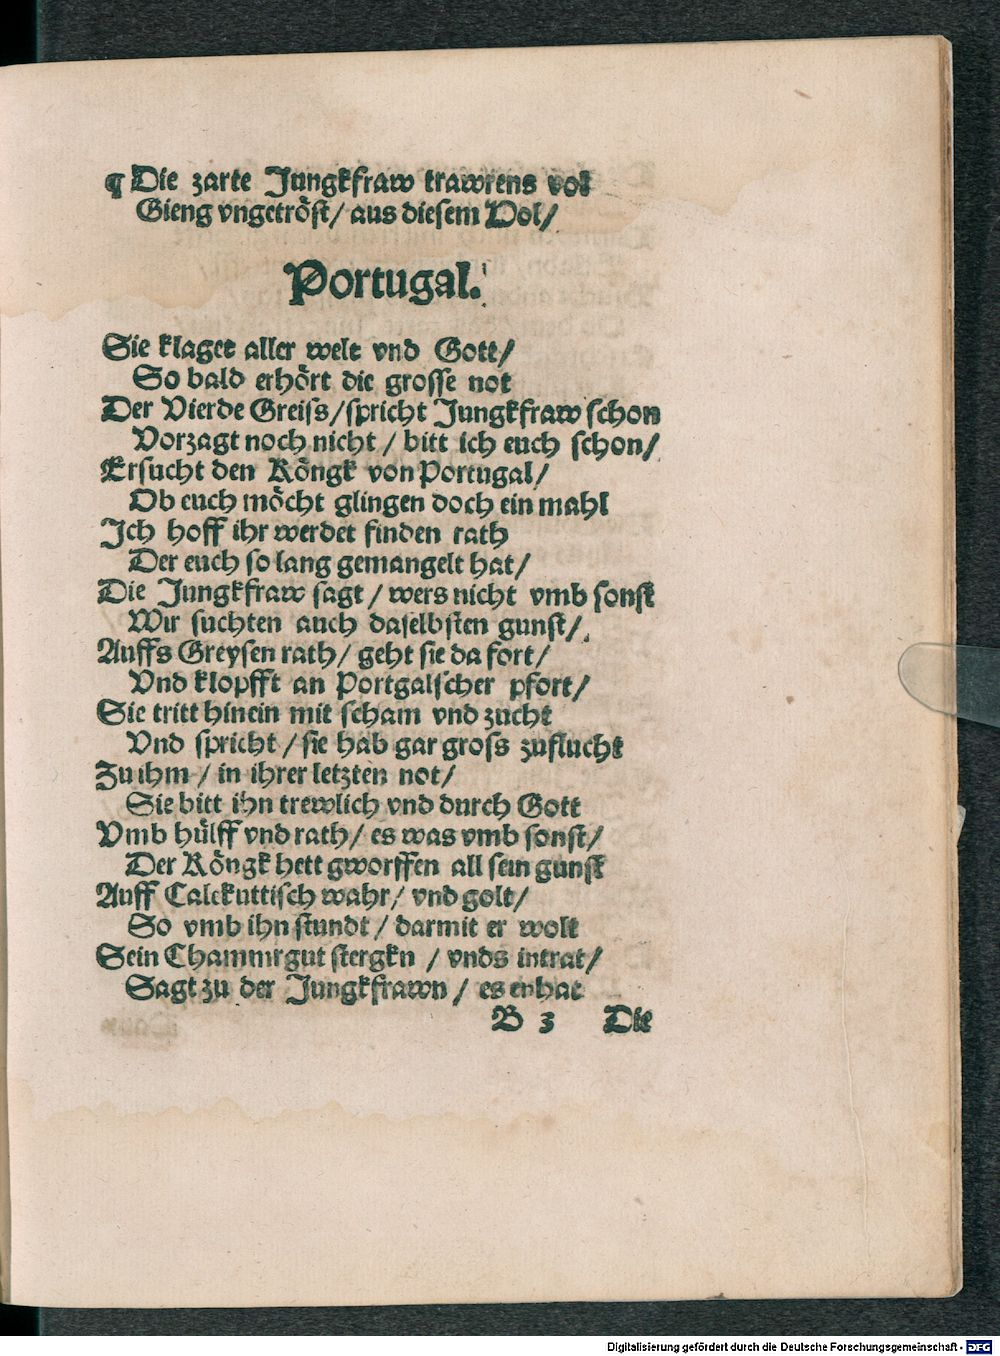 ¶ Die zarte Jungkfraw trawrens vol
Gieng vngetröst/ aus diesem Pol/
Portugal.
Sie klaget aller welt vnd Gott/
So bald erhört die grosse not
Der Vierde Greiss/spricht Jungkfraw schon
Vorzagt noch nicht / bitt ich euch schon/
Ersucht den Köngk von Portugal/
Ob euch möcht glingen doch ein mahl
Ich hoff ihr werdet finden rath
Der euch so lang gemangelt hat/
Die Jungkfraw sagt / wers nicht vmb sonst
Wir suchten auch daselbsten gunst/
Auffs Greysen rath/ geht sie da fort/
Vnd klopfft an Portgalscher pfort/
Sie tritt hinein mit scham vnd zucht
Vnd spricht / sie hab gar gross zuflucht
Zu ihm / in ihrer letzten not/
Sie bitt ihn trewlich vnd durch Gott
Vmb hülff vnd rath/ es was vmb sonst/
Der Köngk hett gworffen all sein gunst
Auff Calekuttisch wahr/ vnd golt/
So vmb ihn stundt / darmit er wolt
Sein Chammrgut stergkn / vnds intrat/
Sagt zu der Jungkfrawn / es enhat
B 3 Die
Digitalisierung gefördert durch die Deutsche Forschungsgemeinschaft - DFG